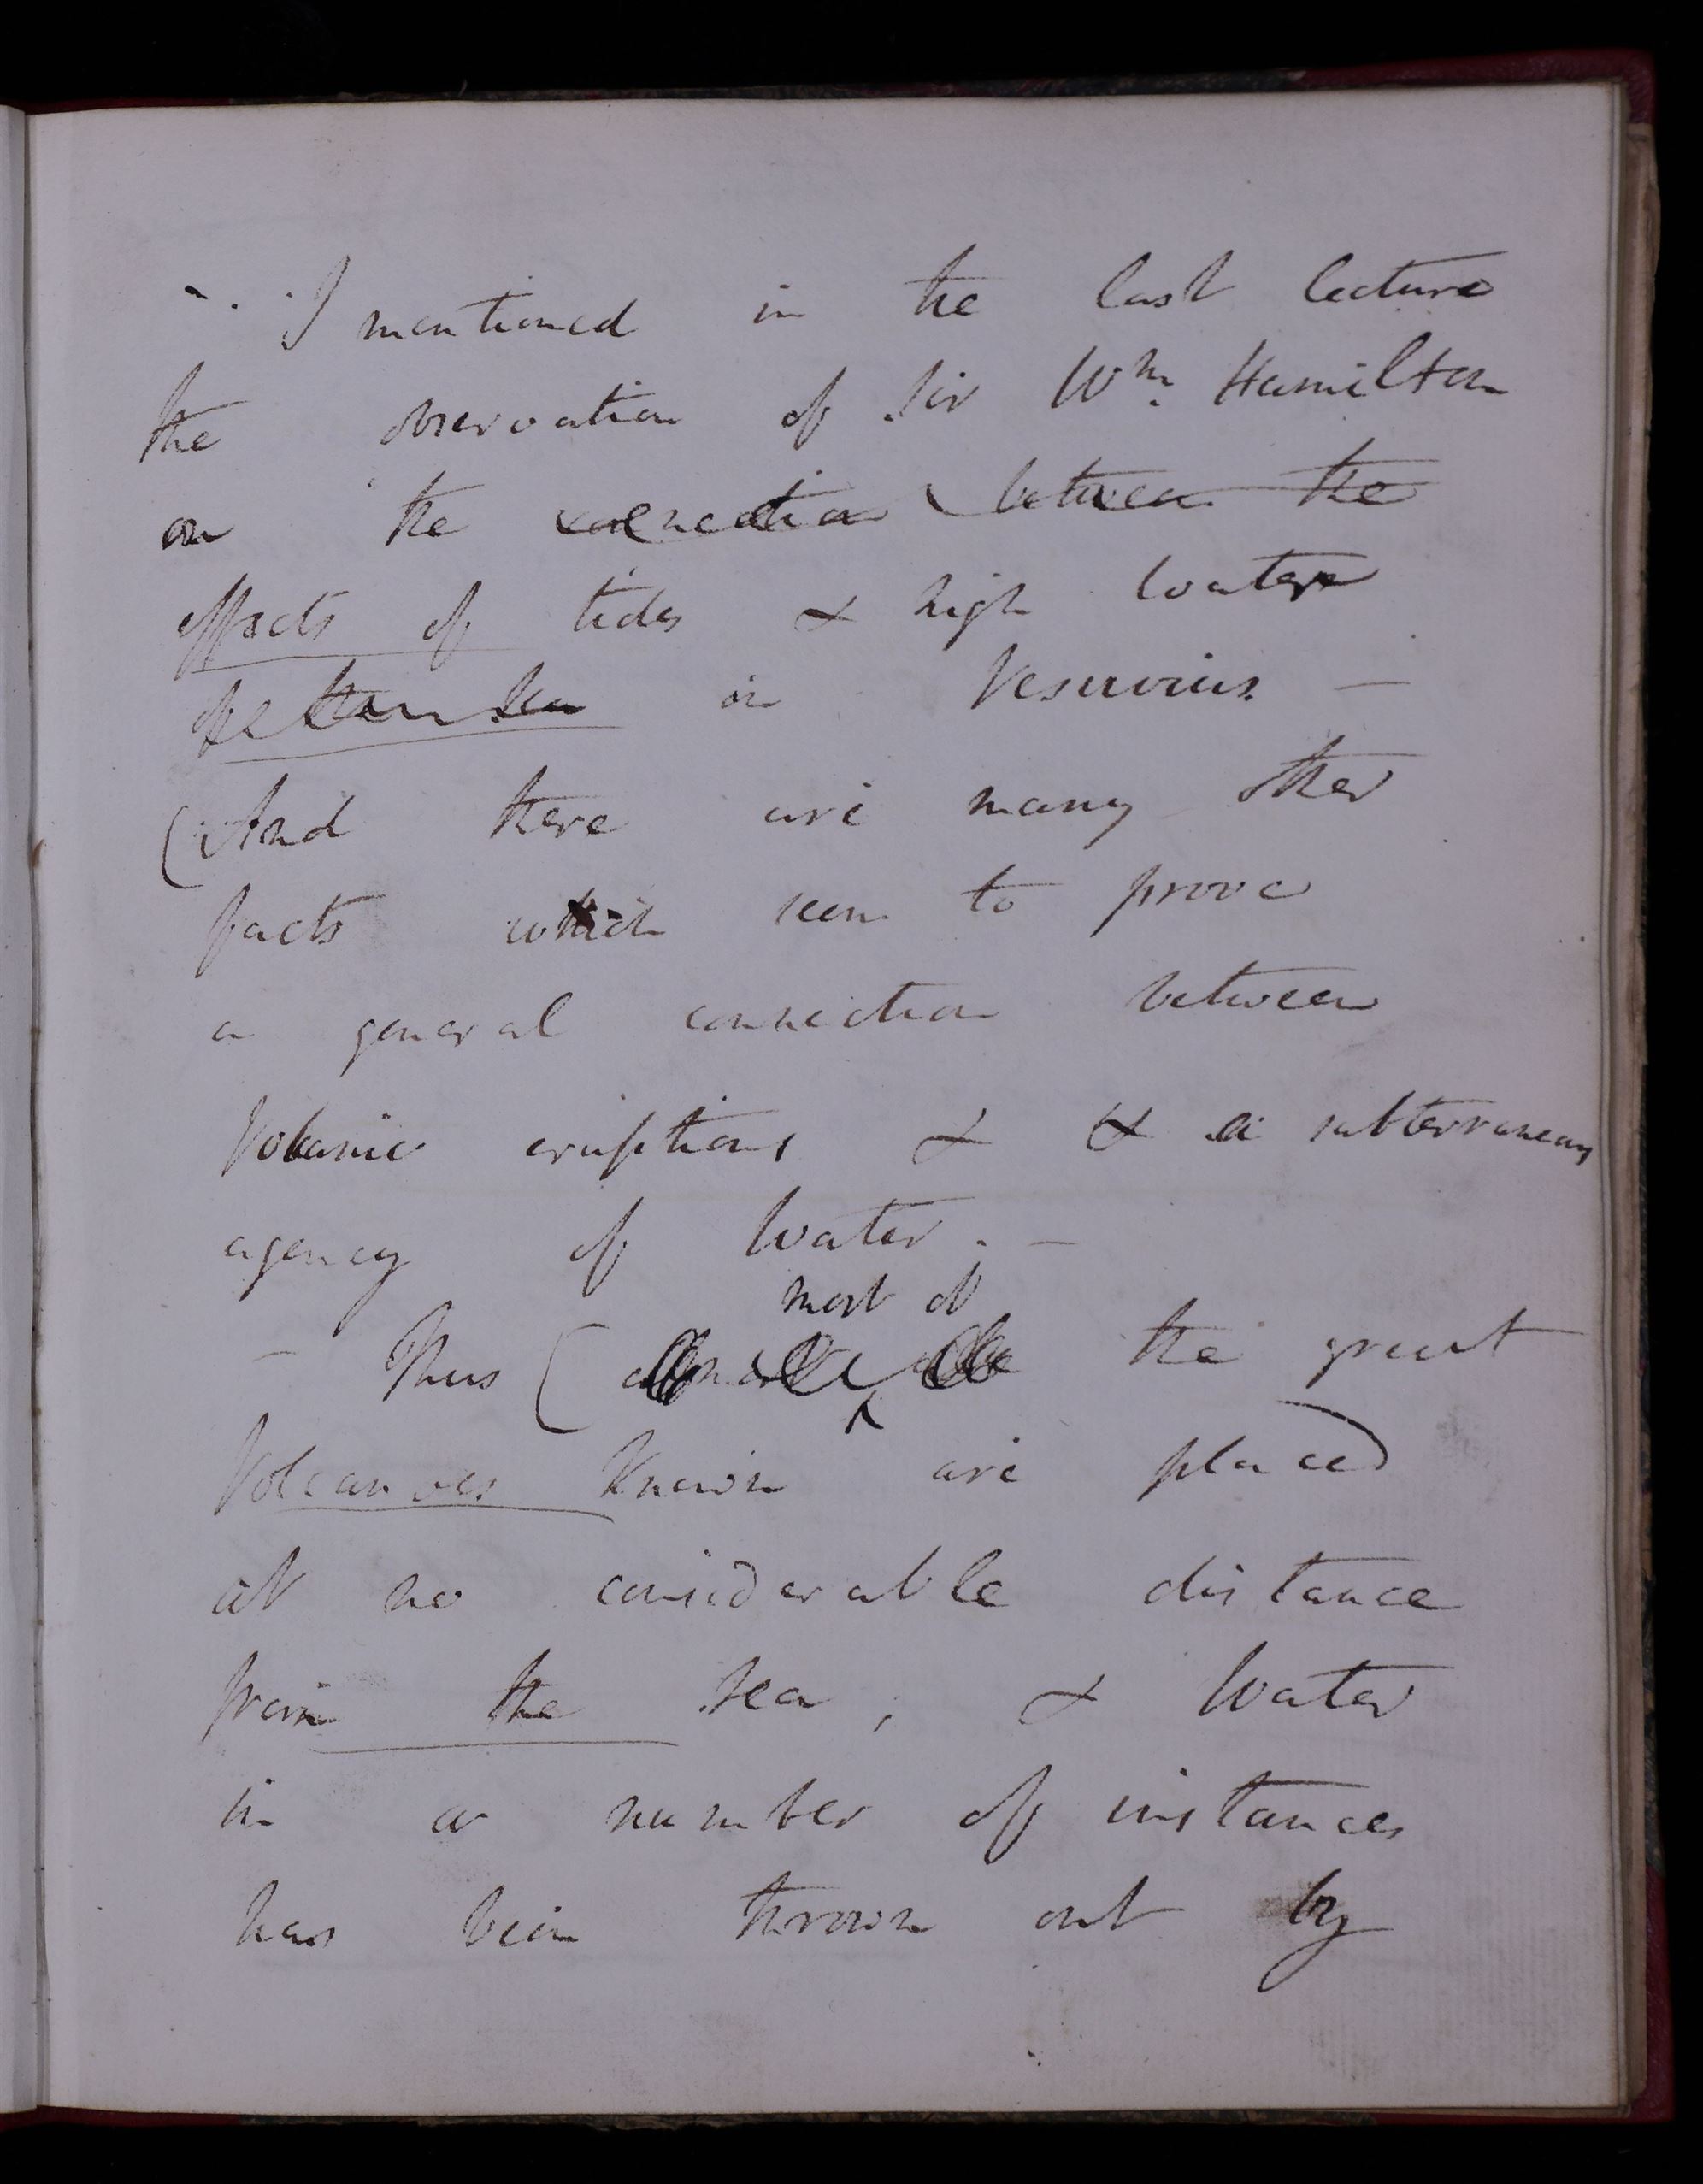 I mentioned in the last lecture
the observation of Sir Wm. Hamilton
on the connection between the
effects of tides & high water
in Vesuvius. —
(And there are many other
facts which seem to prove
a general connection between
Volcanic eruptions & & a subterranean
agency of Water. —
most of
— Thus ( the great
Volcanoes known are placed
at no considerable distance
from the sea; & Water
in a number of instances
has been thrown out by